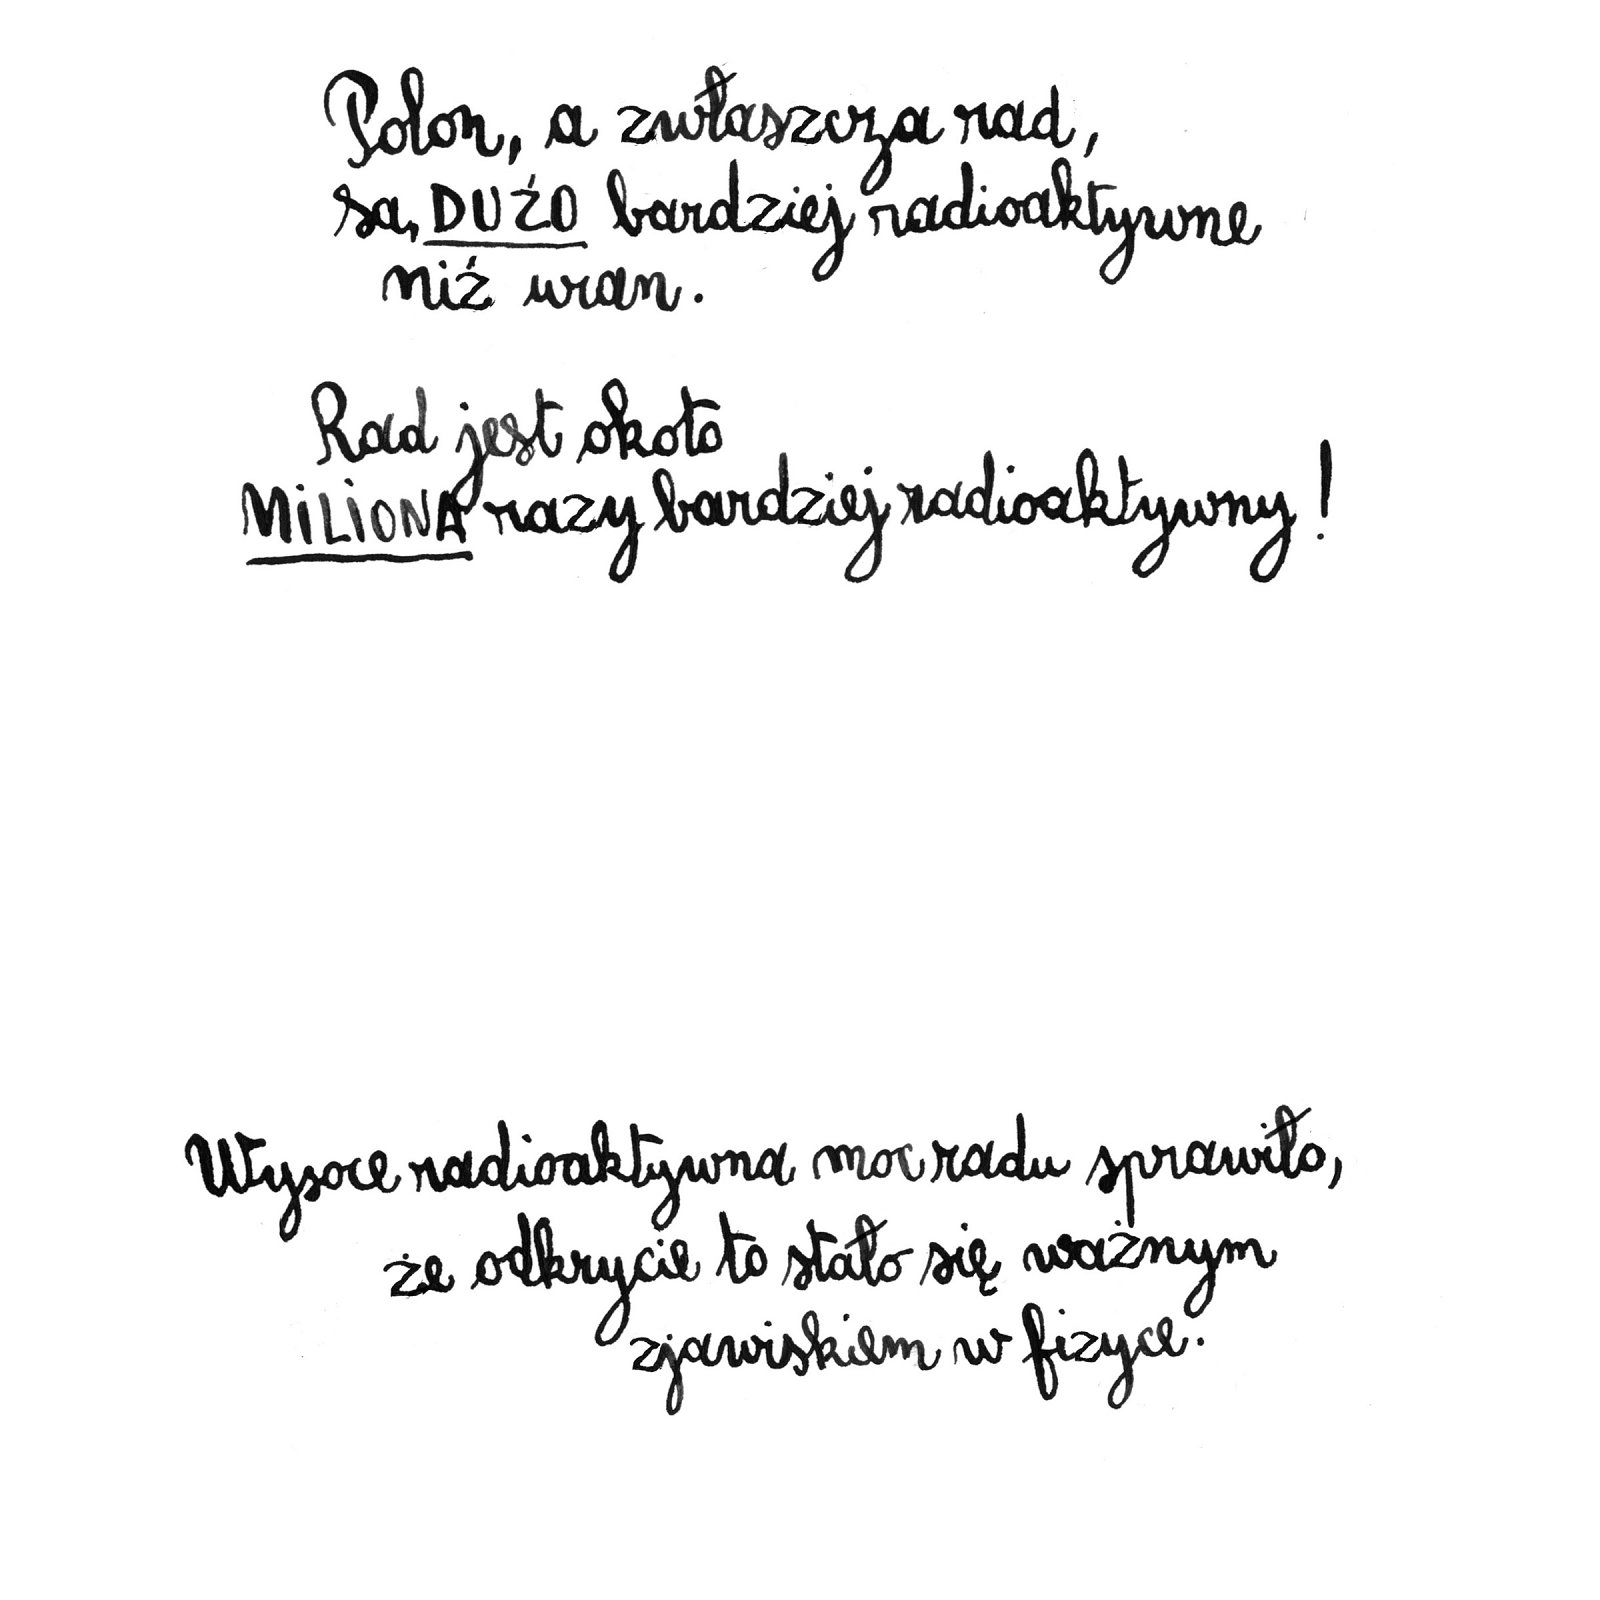 Polon, a zwłaszcza rad,
są DUŻO bardziej radioaktywne
niż uran.
Rad jest około
MILIONA razy bardziej radioaktywny!
Wysoce radioaktywna moc radu sprawiło,
że odkrycie to stało się ważnym
zjawiskiem w fizyce.